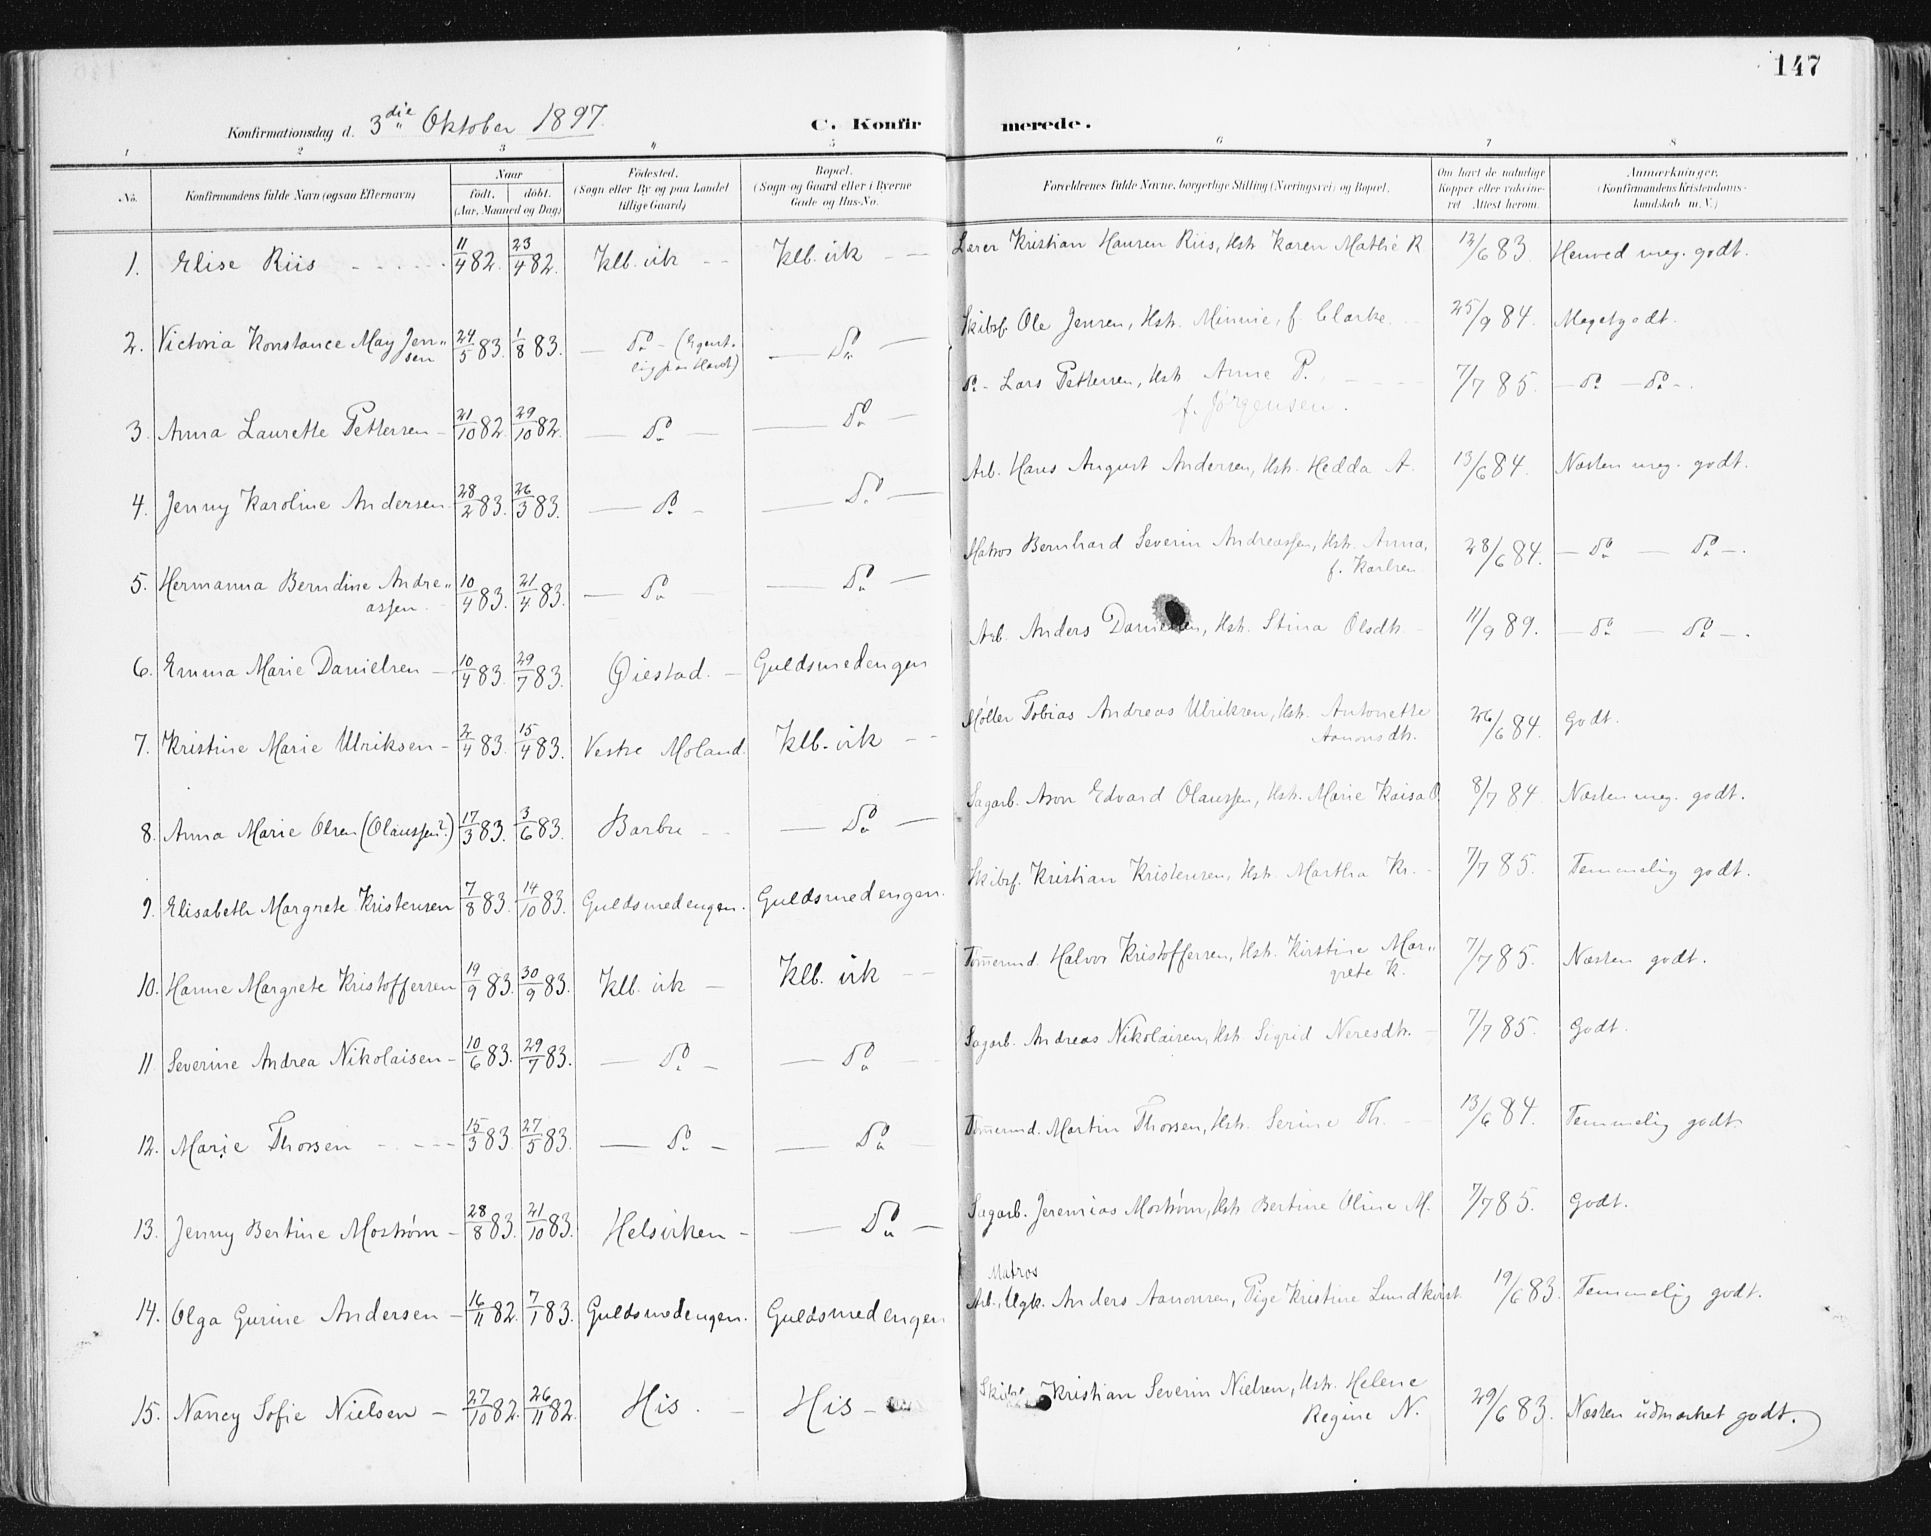 147
Konfirmationsdag d. 3die Oktober 1897. C. Konfirmerede.
1 2 3 4 5 6 7 8
No. Konfirmandens fulde Navn (ogsaa Efternavn) Naar født. døbt. (Aar, Maaned og Dag) Fødested. (Sogn eller By og paa Landet tillige Gaard) Bopæl. (Sogn og Gaard eller i Byerne Gade og Hus-No. Forældrenes fulde Navne, borgerlige Stilling (Næringsvei) og Bopæl. Om havt de naturlige Kopper eller vaccineret Attest herom. Anmærkninger. (Konfirmandens Kristendomskundskab m.V.)
1. Elise Riis 11/4 82. 23/4 82. Klb. vik Klb. vik Lærer Kristian Hansen Riis, Hst. Karen Mathie R 13/6 83. Henved meg. godt.
2. Victoria Konstance May Jensen 24/5 83. 1/8 83. Do (Egentlig paa Havet) Do Skibsf. Ole Jensen, Hst. Minnie, f. Clarke. 25/9 84. Megetgodt.
3. Anna Laurette Pettersen 21/10 82. 29/10 82. Do Do Do Lars Pettersen, Hst. Anne P. f. Jørgensen. 7/7 85. Do Do
4. Jenny Karoline Andersen 28/2 83. 26/3 83. Do Do Arb. Hans August Andersen, Hst. Hedda A. 13/6 84. Næsten meg. godt.
5. Hermanna Berndine Andreassen 10/4 83. 21/4 83. Do Do Matros Bernhard Severin Andreassen, Hst. Anna, f. Karlsen 28/6 84. Do Do
6. Emma Marie Danielsen 10/4 83. 29/7 83. Øiestad. Guldsmedengen Arb. Anders Danielsen, Hst. Stina Olsdtr. 11/9 89. Do Do
7. Kristine Marie Ulriksen 2/4 83. 15/4 83. Vestre Moland. Klb. vik Møller Tobias Andreas Ulriksen, Hst. Antonette Aanonsdtr. 26/6 84. Godt.
8. Anna Marie Olsen (Olaussen?) 17/3 83. 3/6 83. Barbu Do Sagarb. Aron Edvard Olaussen, Hst. Marie Kaisa O. 8/7 84. Næsten meg. godt.
9. Elisabeth Margrete Kristensen 7/8 83. 14/10 83. Guldsmedengen. Guldsmedengen. Skibsf. Kristian Kristensen, Hst. Martha Kr. 7/7 85. Temmelig godt.
10. Hanne Margrete Kristoffersen 19/9 83. 30/9 83. Klb. vik Klb. vik Tømermd. Halvor Kristoffersen, Hst. Kirstine Margrete K. 7/7 85. Næsten godt.
11 Severine Andrea Nikolaisen 10/6 83. 29/7 83. Do Do Sagarb. Andreas Nikolaisen, Hst. Sigrid Neresdtr. 7/7 85. Godt.
12. Marie Thorsen 15/3 83. 27/5 83. Do Do Tømermd. Martin Thorsen, Hst. Serine Th. 13/6 84. Temmelig godt
13. Jenny Bertine Mostrøm 28/8 83. 21/10 83. Helsvrken Do Sagarb. Jeremias Mostrøm, Hst. Bertine Oline M. 7/7 85. Godt.
14. Olga Gurine Andersen 16/11 82. 7/1 83. Guldsmedengen. Guldsmedengen Matros Arb., Ugk. Anders Aanonsen, Pige Kristine Lundkvist 19/6 83. Temmelig godt.
15. Nancy Sofie Nielsen 27/10 82. 26/11 82. His. His Kristian Severin Nielsen, Hst. Helene Regine N. 29/6 83. Næsten udmærket godt.